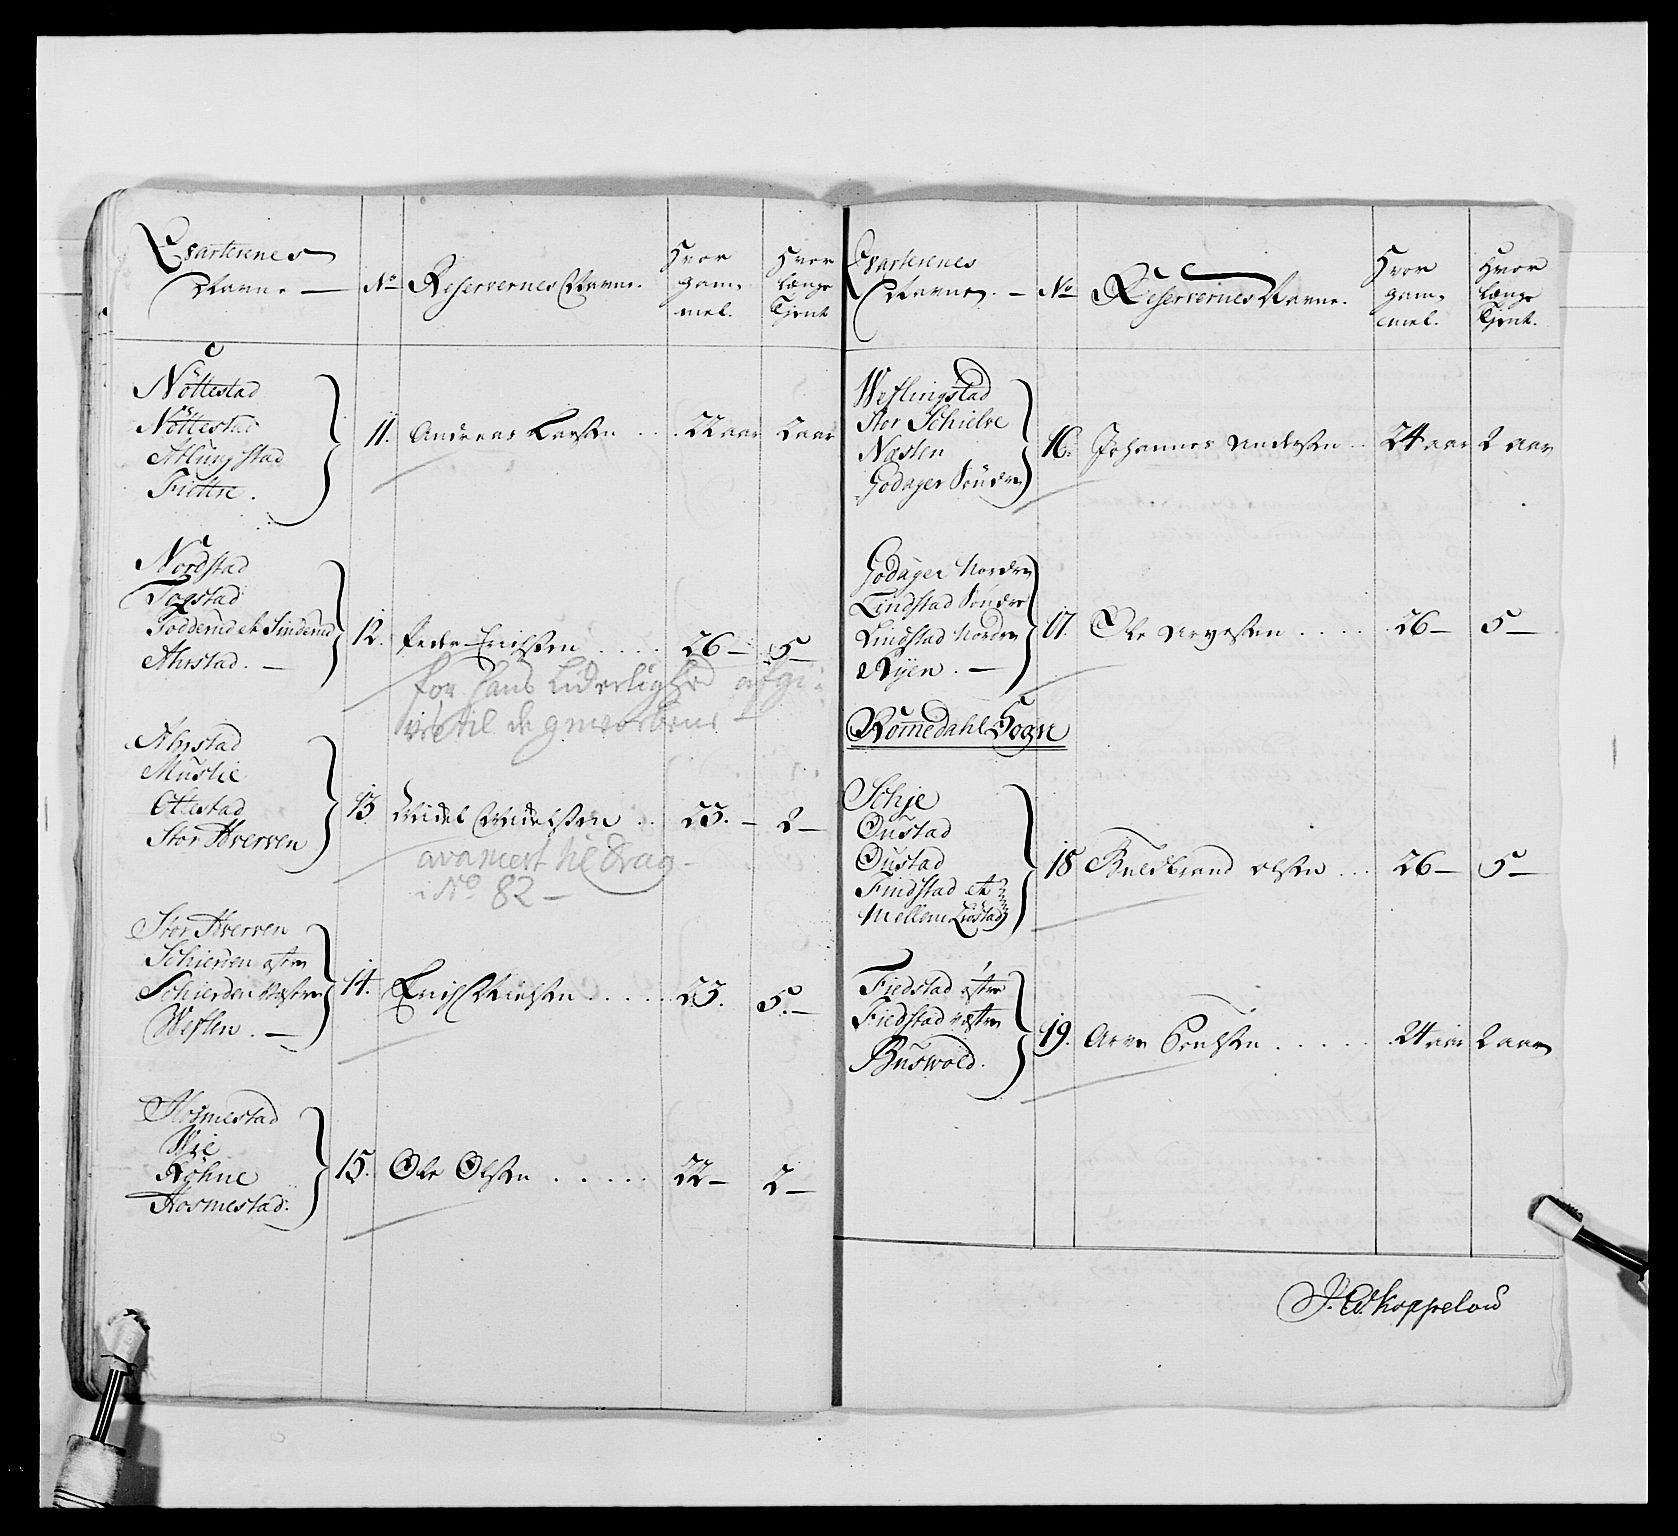 Qvarterenes
Navne — No Reservernes Navne. Hvor gam- mel. Hvor længe Tjent
Nöttestad
Nöttestad
Atlungstad
Fiettre.
11. Andreas Larsen .. 22 aar 2 aar
Nordstad
Togstad
Todderud et Sinderud
Ahrstad. —
12. Peder Erichsen ..... 26 — 5 —
for hans Liderlighed afgi-
vet til de gevorbene —
Ahrstad
Muslie
Ottestad
Stor Hverven
13. Midel Midelsen .. 23. — 2 —
avancert til Drag-
i No 82 —
Stor Hverven
Schierden østre
Schierden Vestre
Weflen. —
14. Erich Nielsen ..... 23. 5. —
Hosmestad
Wie
Röhne
Hosmestad.
15. Ole Olsen ..... 22 — 2 —
Qvarterenes
Navne. — No Reservernes Navne. Hvor gam- mel. Hvor længe Tjent.
Weflingstad
Stor Schielve
Næsten
Godager Søndre
16. Johannes Andersen .. 24 aar 2 aar
Godager Nordre
Lindstad Søndre
Lindstad Nordre
Ryen. —
17. Ole Arvesen ..... 26 — 5 —
Romedahl Sogn
Schje
Oustad
Oustad
Findstad et
Mellem Lidstad
18 Guldbrand Olsen ... 26 — 5 —
Fiedstad østre
Fiedstad vestre
Buswold.
19. Arne Poulsen ..... 24 aar 2 aar
J. W. Koppelow